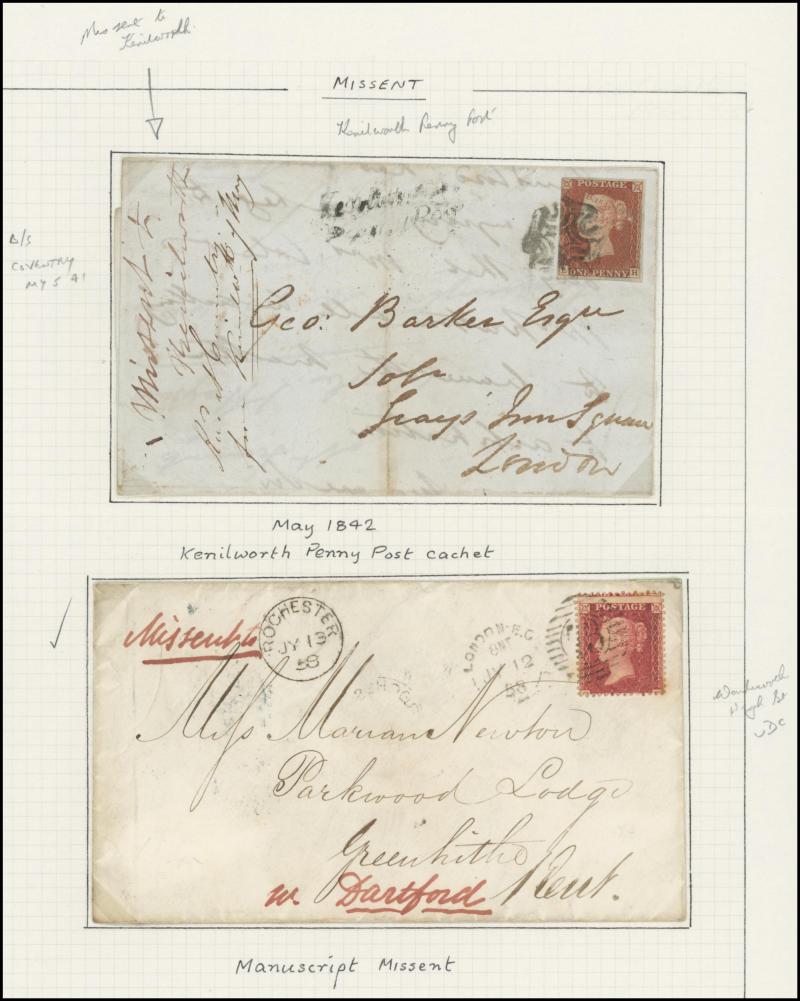 Missent to
Kenilworth
MISSENT
Kenilworth Penny Post
B/S
COVENTRY
MY 5 41
Missent to
Kenilworth
Kenilworth
Penny Post
POSTAGE
ONE PENNY
H
Geo: Barker Esqre
Grays Inn Square
London
May 1842
Kenilworth Penny Post cachet
Missent to
ROCHESTER
JY 13
58
LONDON-E.C
JY 12
58
POSTAGE
Miss Marian Newton
Parkwood Lodge
Greenhithe
nr Dartford Kent.
Manuscript Missent